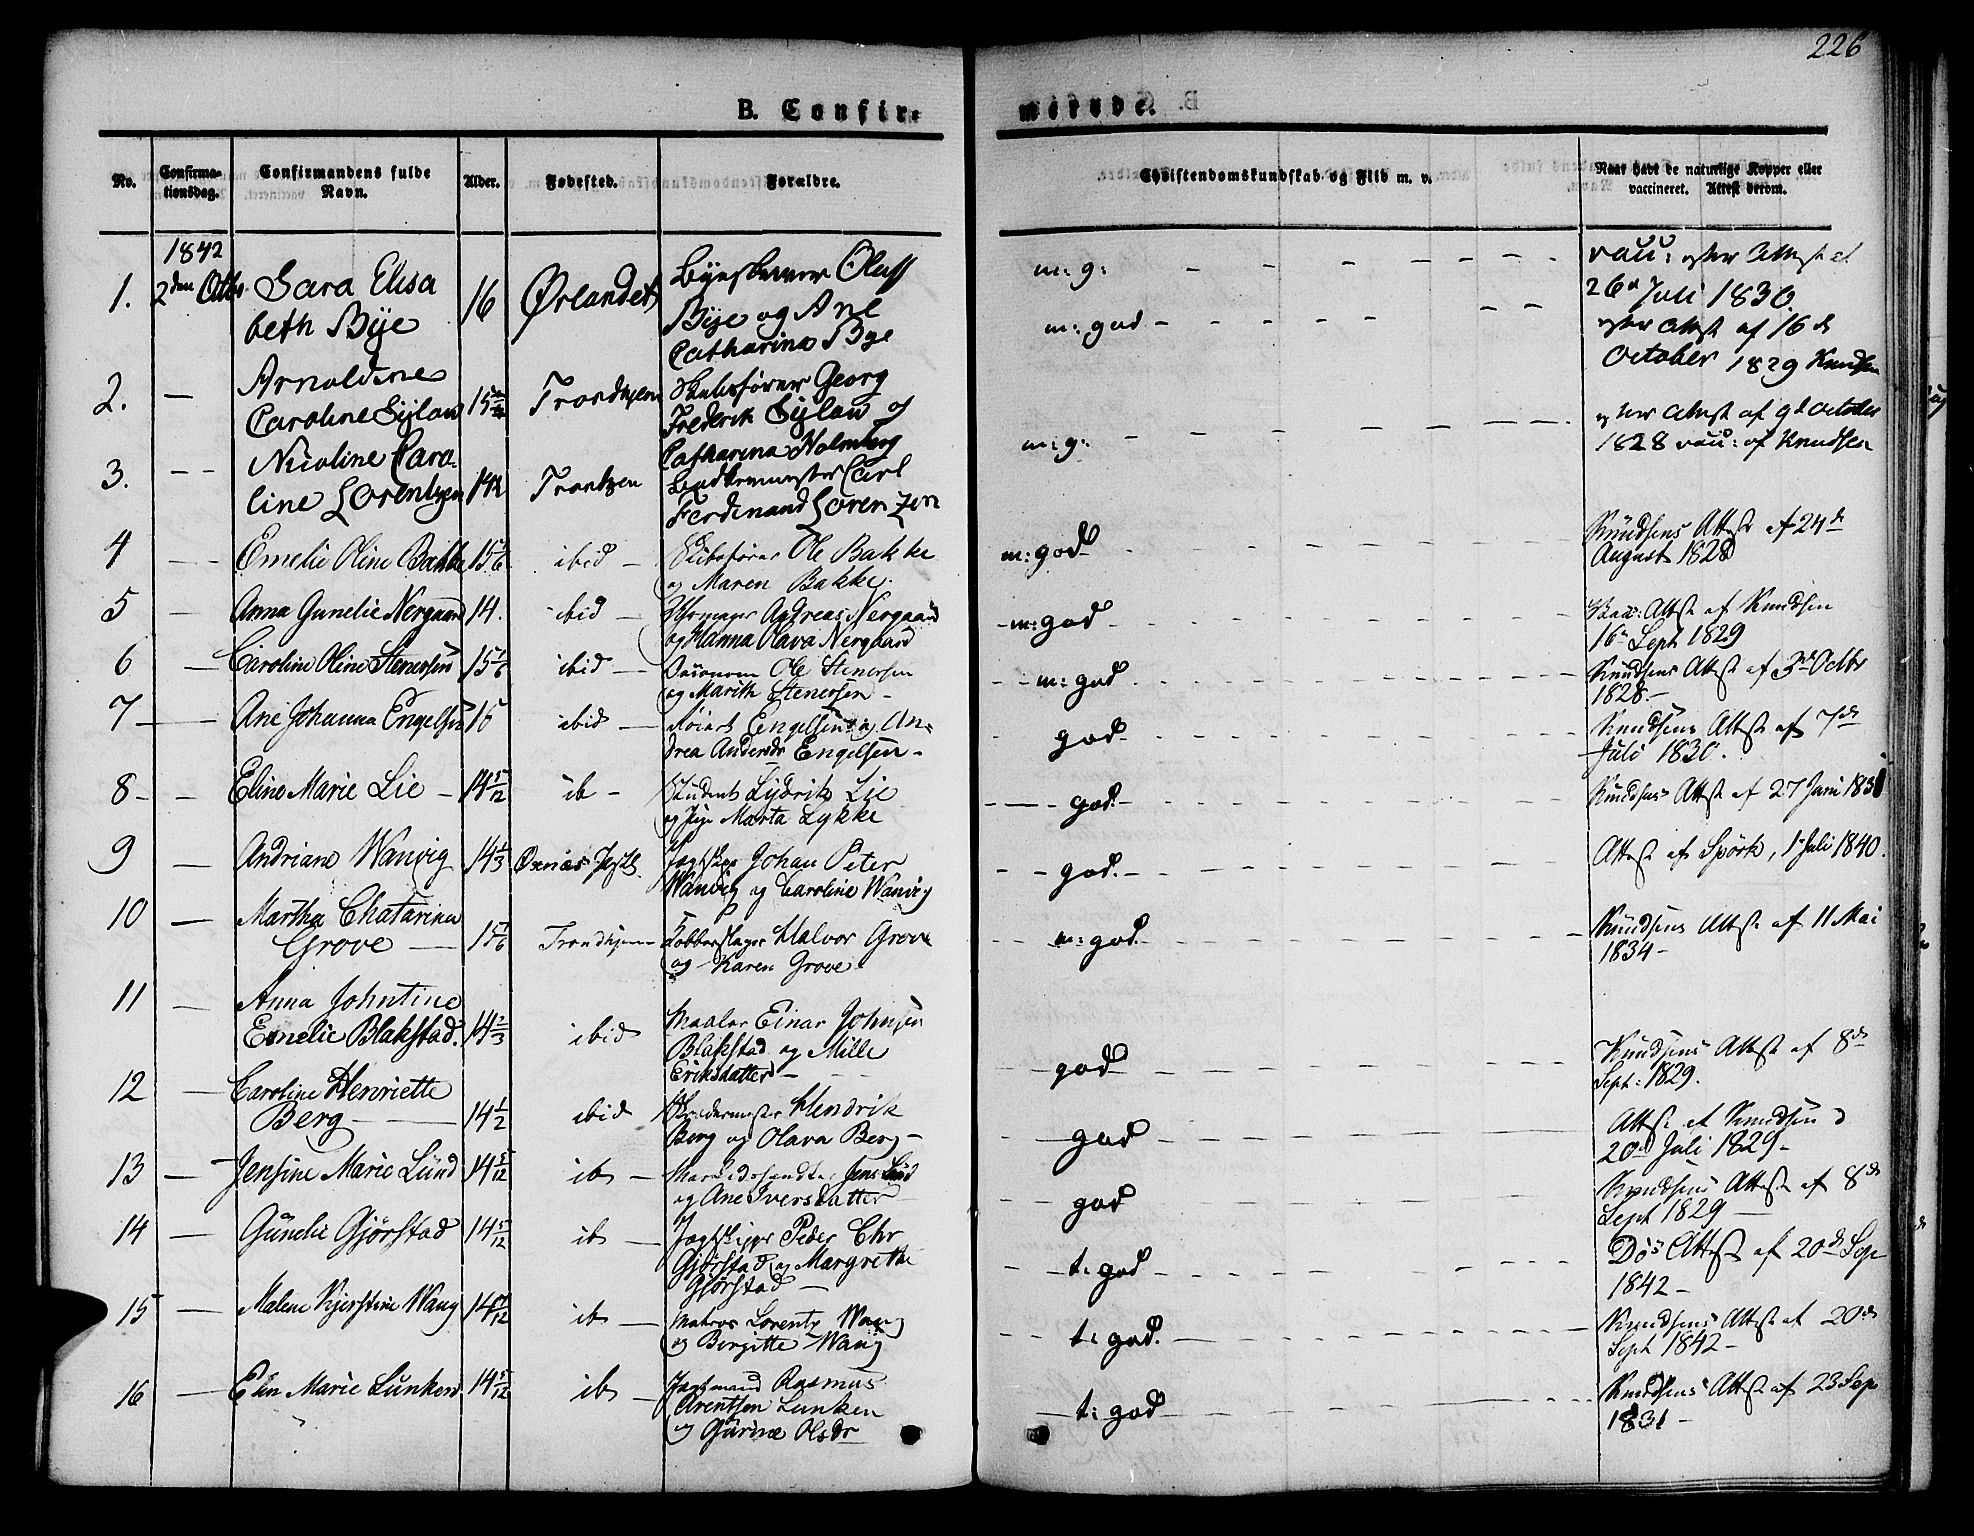 226
B. Confir-
merede.
No.
Confirma-
tionsdag.
Confirmandens fulde
Navn.
Alder.
Fødested.
Forældre.
Christendomskundskab og Flid m. v.
Naar havt de naturlige Kopper eller
vaccineret. Attest derom.
1842
1. 2den Octbr. Sara Elisa 16 Ørlandet Olaff
beth Bye
Bye og Ane
Catharina Bye
m: g:
vacc: efter Attest af
26d Juli 1830.
2. — Arnoldine
Caroline Sylow Trondhjem Georg
Frederik Sylow og
Catharina Holmberg
m: god
efter Attest af 16de
October 1829 Knudsen
3. — Nicoline Caro-
line Lorentzen Carl
Ferdinand Lorenzen
m: g:
efter Attest af 9d October
1828 vacc: af Knudsen
4 — Emelie Oline Bakke 15 1/6 ibid — Ole Bakke
og Maren Bakke.
m: god
Knudsens Attest af 24de
August 1828
5 — Anna Gunelie Nergaard 14. ibid — Andreas Nergaard
og Hanna Olava Nergaard
m: god
Vac: Attest af Knudsen
16 Sept 1829
6 — Caroline Oline Stenersen 15 1/6 ibid — Ole Stenersen
og Marith Stenersen
m: god
Knudsens Attest af 3de Octbr
1828.
7 — Ane Johanna Engelsen 15 ibid — Engelsen og An-
drea Andersdr Engelsen
god
Knudsens Attest af 7de
Juli 1830.
8 — Eline Marie Lie 14 5/12 ib — Student Lydrik Lie
og Marta Lykke
god.
Knudsens Attest af 27 Juni
9 Andriane Wanvig 14 1/3 Jagtskipp Johan Peter
Wanvig og Caroline Wanvig
god.
Attest af Spörk, 1 Juli 1840.
10 — Martha Chatarina
Grove — 15 1/6 Trondhjem Kobberslager Halvor Grove
og Karen Grove
m: god.
Knudsens Attest af 11 Mai
1834
11 — Anna Johntine
Emelie Blakstad. 14 2/3 ibid Maaler Einar Johnsen
Blakstad og Mille
Eriksdatter
god
Knudsens Attest af 8de
Sept: 1829.
12 — Caroline Henriette
Berg — 14 1/2 ibid Hendrik
Berg og Olava Berg
god
Attest af Knudsen
20d Juli 1829
13 — Jensine Marie Lund 14 5/12 ib — Jens Lund
og Ane Iversdatter
god
Knudsens Attest af 8de
Sept 1829
14 — Gunelie Gjørstad 14 5/12 ib — Jagtskipper Peder Chr
Gjørstad og Margrethe
Gjørstad
t: god
Do's Attest af 20de Sep
1842
15 — Malene Kjerstine Wang ib — Matros Lorentz Wang
og Birgitte Wang
t: god.
Knudsens Attest af 20de
Sept 1842
16 — Elen Marie Lunken 14 5/12 ib — Jagtmand Rasmus
Arentsen Lunken
og Gurine Olsdr
t: god
Knudsens Attest af 23 Sep
1831